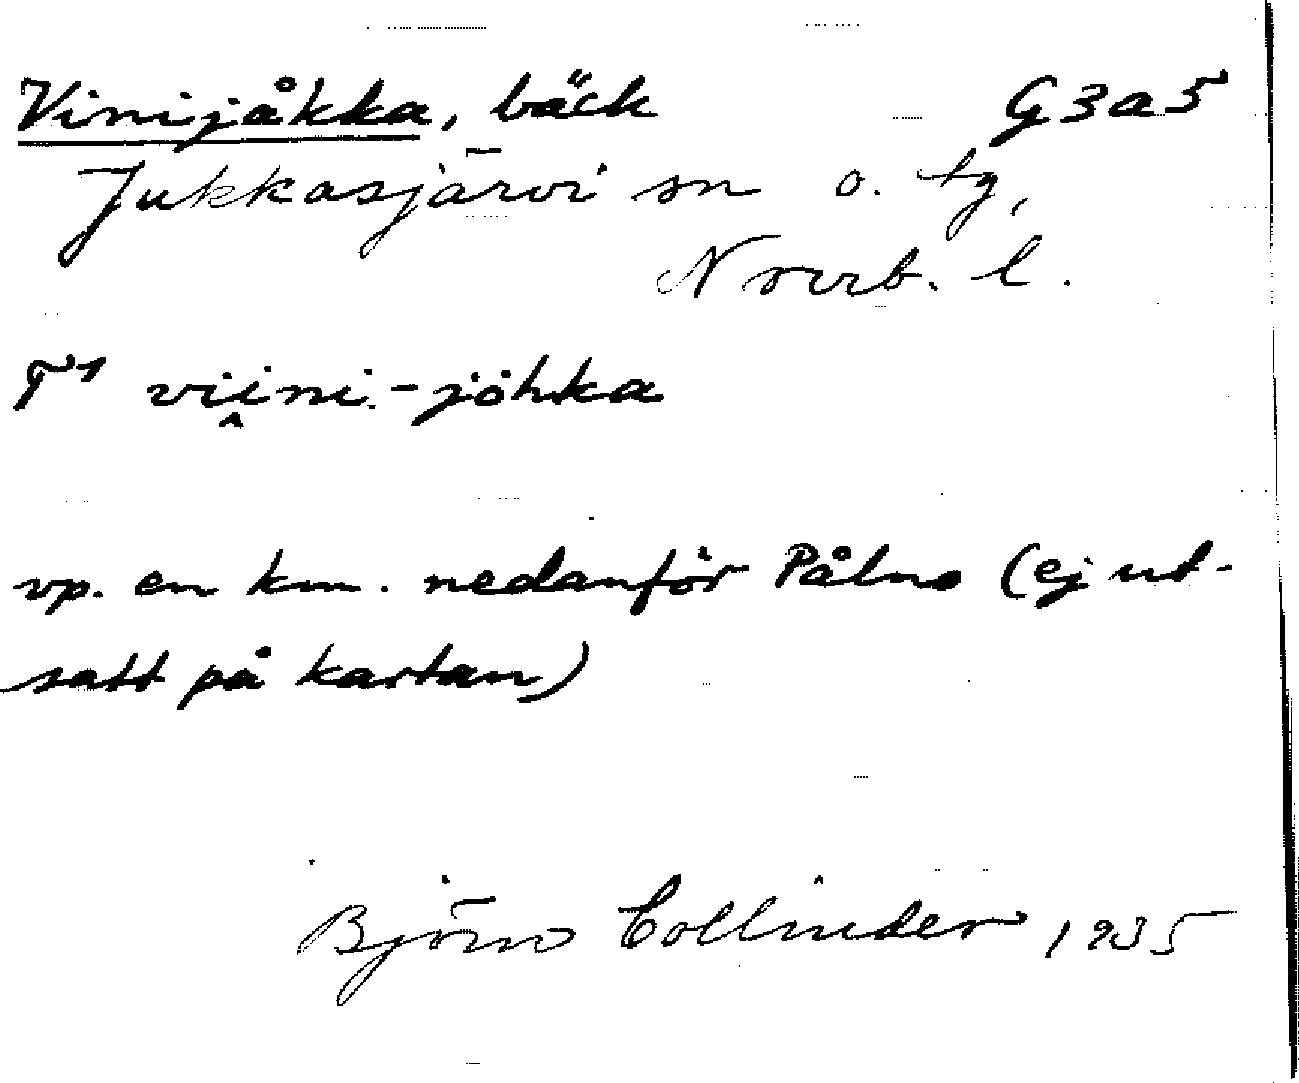 Vinijåkka, bäck G3a5
Jukkasjärvi sn o. tg,
Norrb. l.
T1 viini-jöhka
vp. en km. nedanför Pålno (ej ut-
satt på kartan)
Björn Collinder 1935